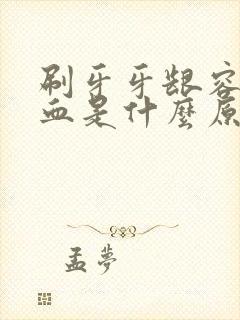 刷牙牙龈容
血是什麼原
孟夢